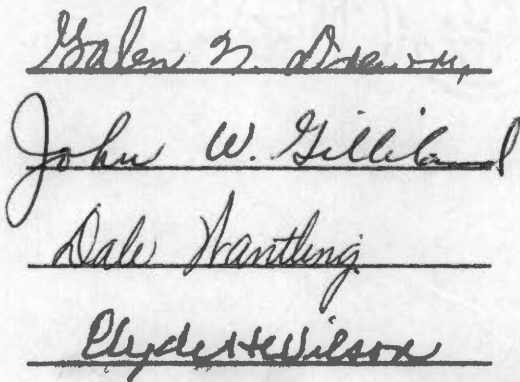 Galen N. Drewry
John W. Gilliland
Dale Wantling
Clyde H Wilson